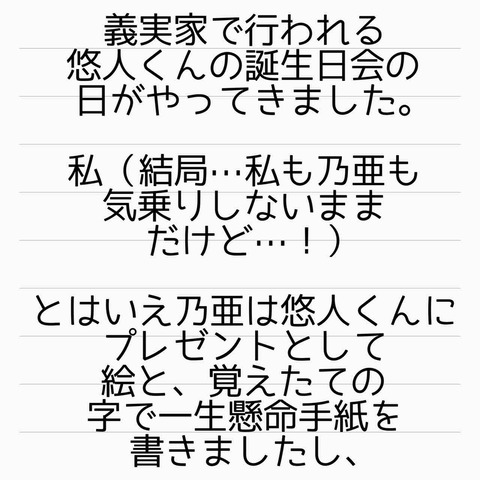 義実家で行われる
悠人くんの誕生日会の
日がやってきました。
私（結局…私も乃亜も
気乗りしないまま
だけど…！）
とはいえ乃亜は悠人くんに
プレゼントとして
絵と、覚えたての
字で一生懸命手紙を
書きましたし、